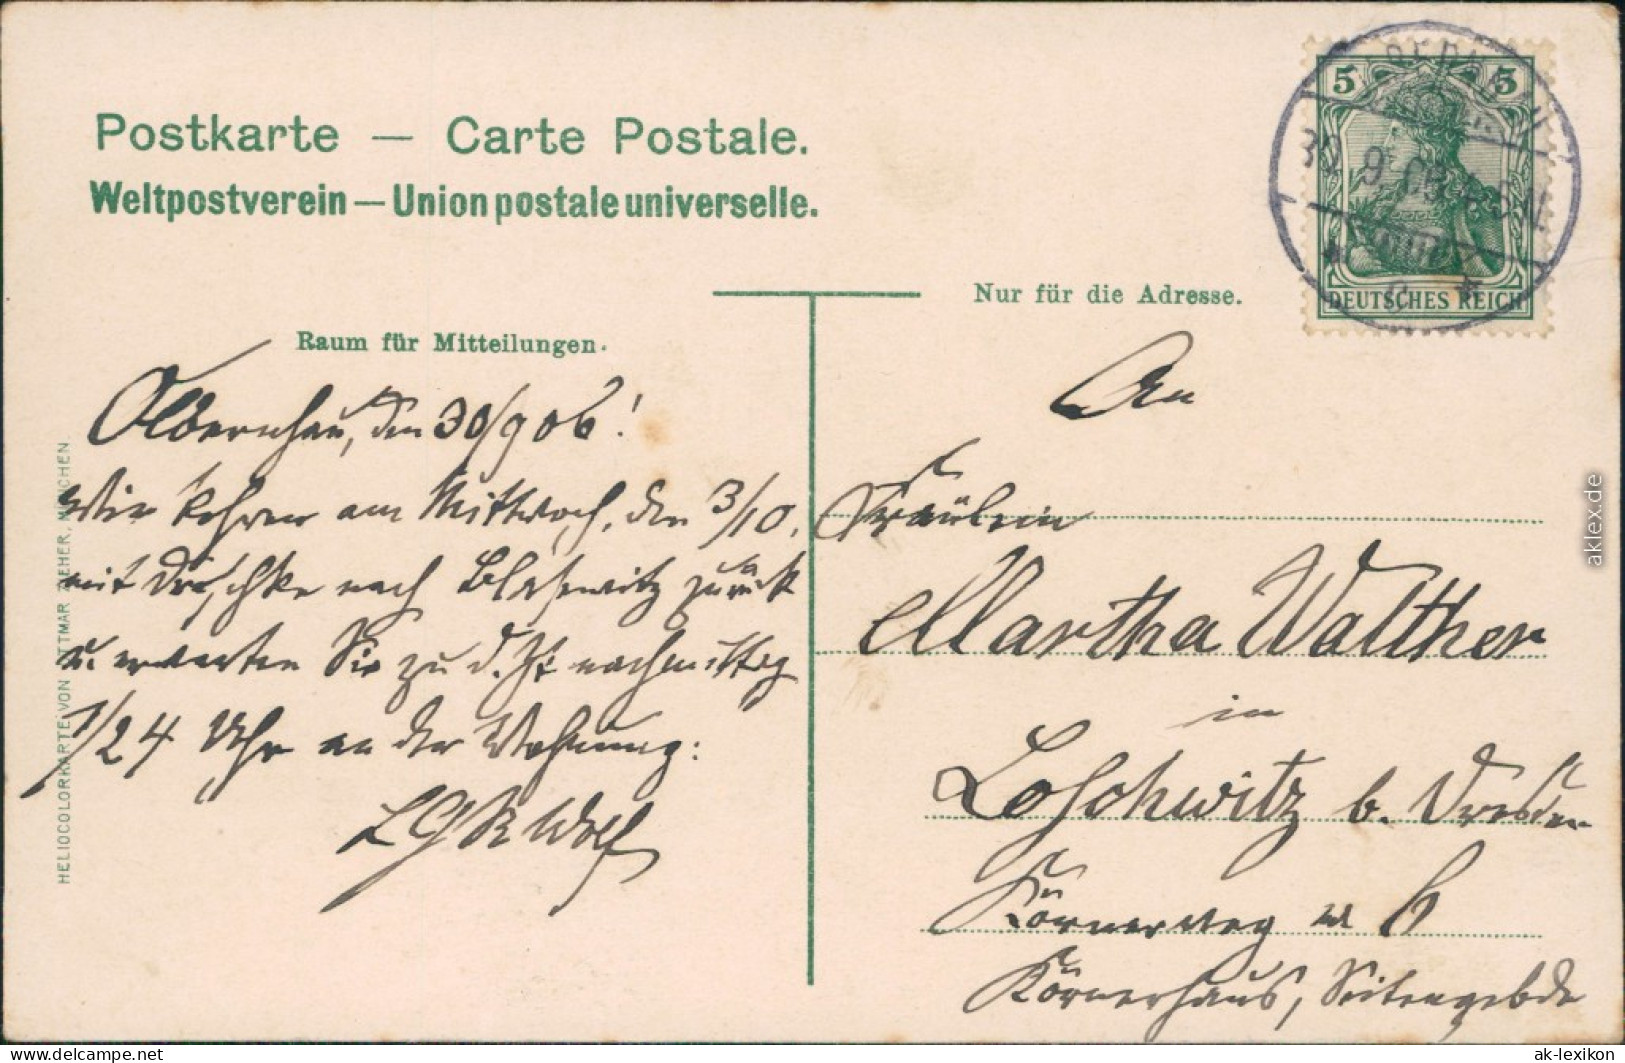 Postkarte — Carte Postale.
Weltpostverein — Union postale universelle.
Nur für die Adresse.
Raum für Mitteilungen.
5 5
DEUTSCHES REICH
30. 9. 06
Olbernhau, den 30/9 06!
Wir kehren am Mittwoch, den 3/10.
mit Droschke nach Blasewitz zurück
u. erwarten Sie zu d. Zt nachmittag
1/2 4 Uhr an der Wohnung:
Wolf
An
Fräulein
Martha Walther
in
Loschwitz b. Dresden
Körnerweg
Körnerhaus, Seitengebde
HELIOCOLORKARTE VON OTTMAR ZIEHER, MÜNCHEN
aklex.de
delcampe.net
ak-lexikon